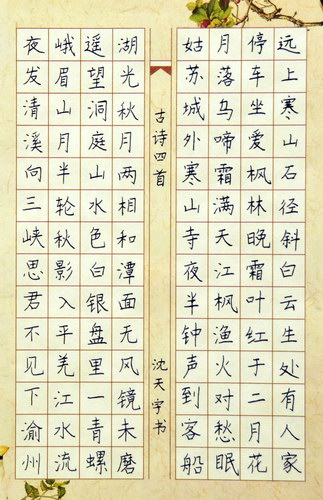 远上寒山石径斜白云生处有人家
停车坐爱枫林晚霜叶红于二月花
月落乌啼霜满天江枫渔火对愁眠
姑苏城外寒山寺夜半钟声到客船
古诗四首
沈天宇书
湖光秋月两相和潭面无风镜未磨
遥望洞庭山水色白银盘里一青螺
峨眉山月半轮秋影入平羌江水流
夜发清溪向三峡思君不见下渝州